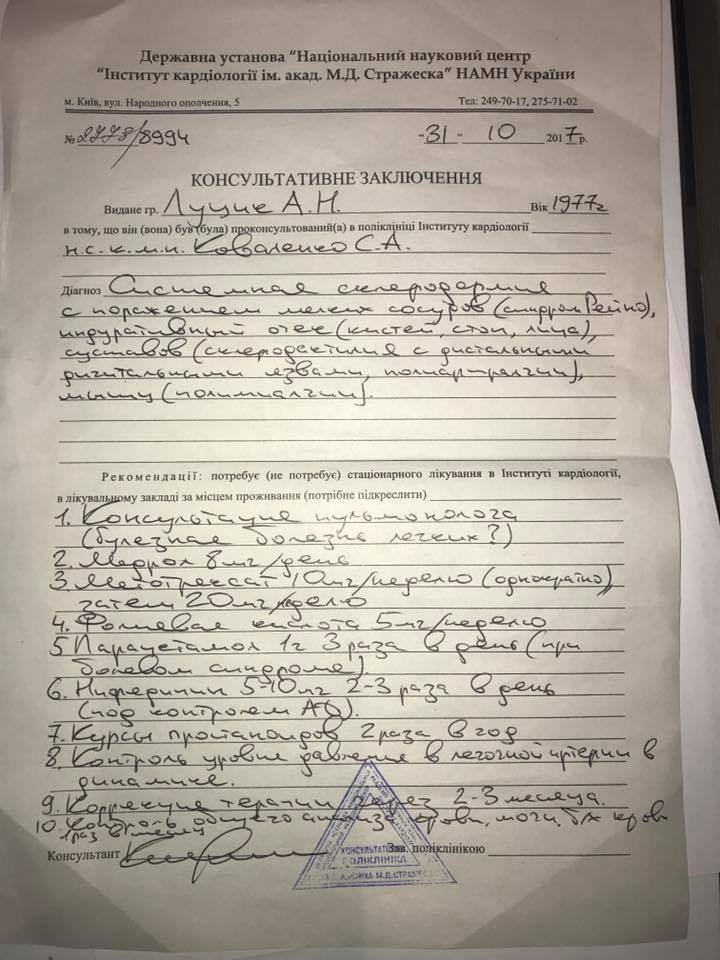 Державна установа “Національний науковий центр
“Інститут кардіології ім. акад. М.Д. Стражеска” НАМН України
м. Київ, вул. Народного ополчення, 5 Тел: 249-70-17, 275-71-02
№ 2778/8994 "31" 10 2017р.
КОНСУЛЬТАТИВНЕ ЗАКЛЮЧЕННЯ
Видане гр. Луцик А.Н. Вік 1977г
в тому, що він (вона) був (була) проконсультований(а) в поліклініці Інституту кардіології
н.с. к.м.н. Коваленко С.А.
Діагноз Системная склеродермия
с поражением мелких сосудов (синдром Рейно),
индуративный отек (кистей, стоп, лица),
суставов (склеродактилия с дистальными
дигитальными язвами, полиартралгии),
мышц (полимиалгии).
Рекомендації: потребує (не потребує) стаціонарного лікування в Інституті кардіології,
в лікувальному закладі за місцем проживання (потрібне підкреслити)
1. Консультация пульмонолога
(булезная болезнь легких?)
2. Медрол 8мг/день
3. Метотрексат 10мг/неделю (однократно),
затем 20мг/неделю
4. Фолиевая кислота 5мг/неделю
5 Парацетамол 1г 3 раза в день (при
болевом синдроме).
6. Нифедипин 5-10мг 2-3 раза в день
(под контролем АД).
7. Курсы простаноидов 2 раза в год
8. Контроль уровня давления в легочной артерии в
динамике.
9. Коррекция терапии через 2-3 месяца.
10. Контроль общего анализа крови, мочи, б/х крови
1 раз в месяц
Консультант Зав. поліклінікою
КОНСУЛЬТАТИВНА
ПОЛІКЛІНІКА